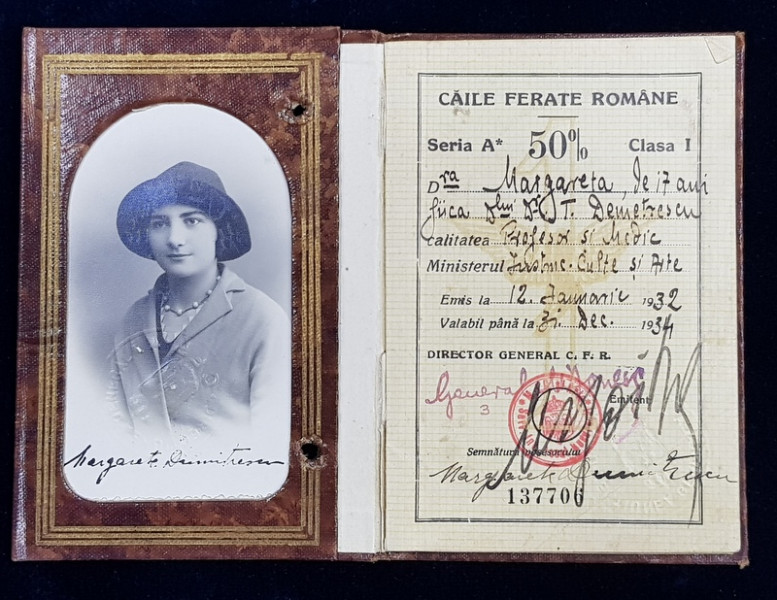 Margareta Dumitrescu
CĂILE FERATE ROMÂNE
Seria A* 50% Clasa I
Dra Margareta, de 17 ani
fiica Dlui Dr. T. Demetrescu
calitatea Profesor și Medic
Ministerul Instruc. Culte și Arte
Emis la 12. Ianuarie 1932
Valabil până la 31. Dec. 1934
DIRECTOR GENERAL C. F. R.
General
3
Emitent
Semnătura posesorului
Margareta Dumitrescu
137706